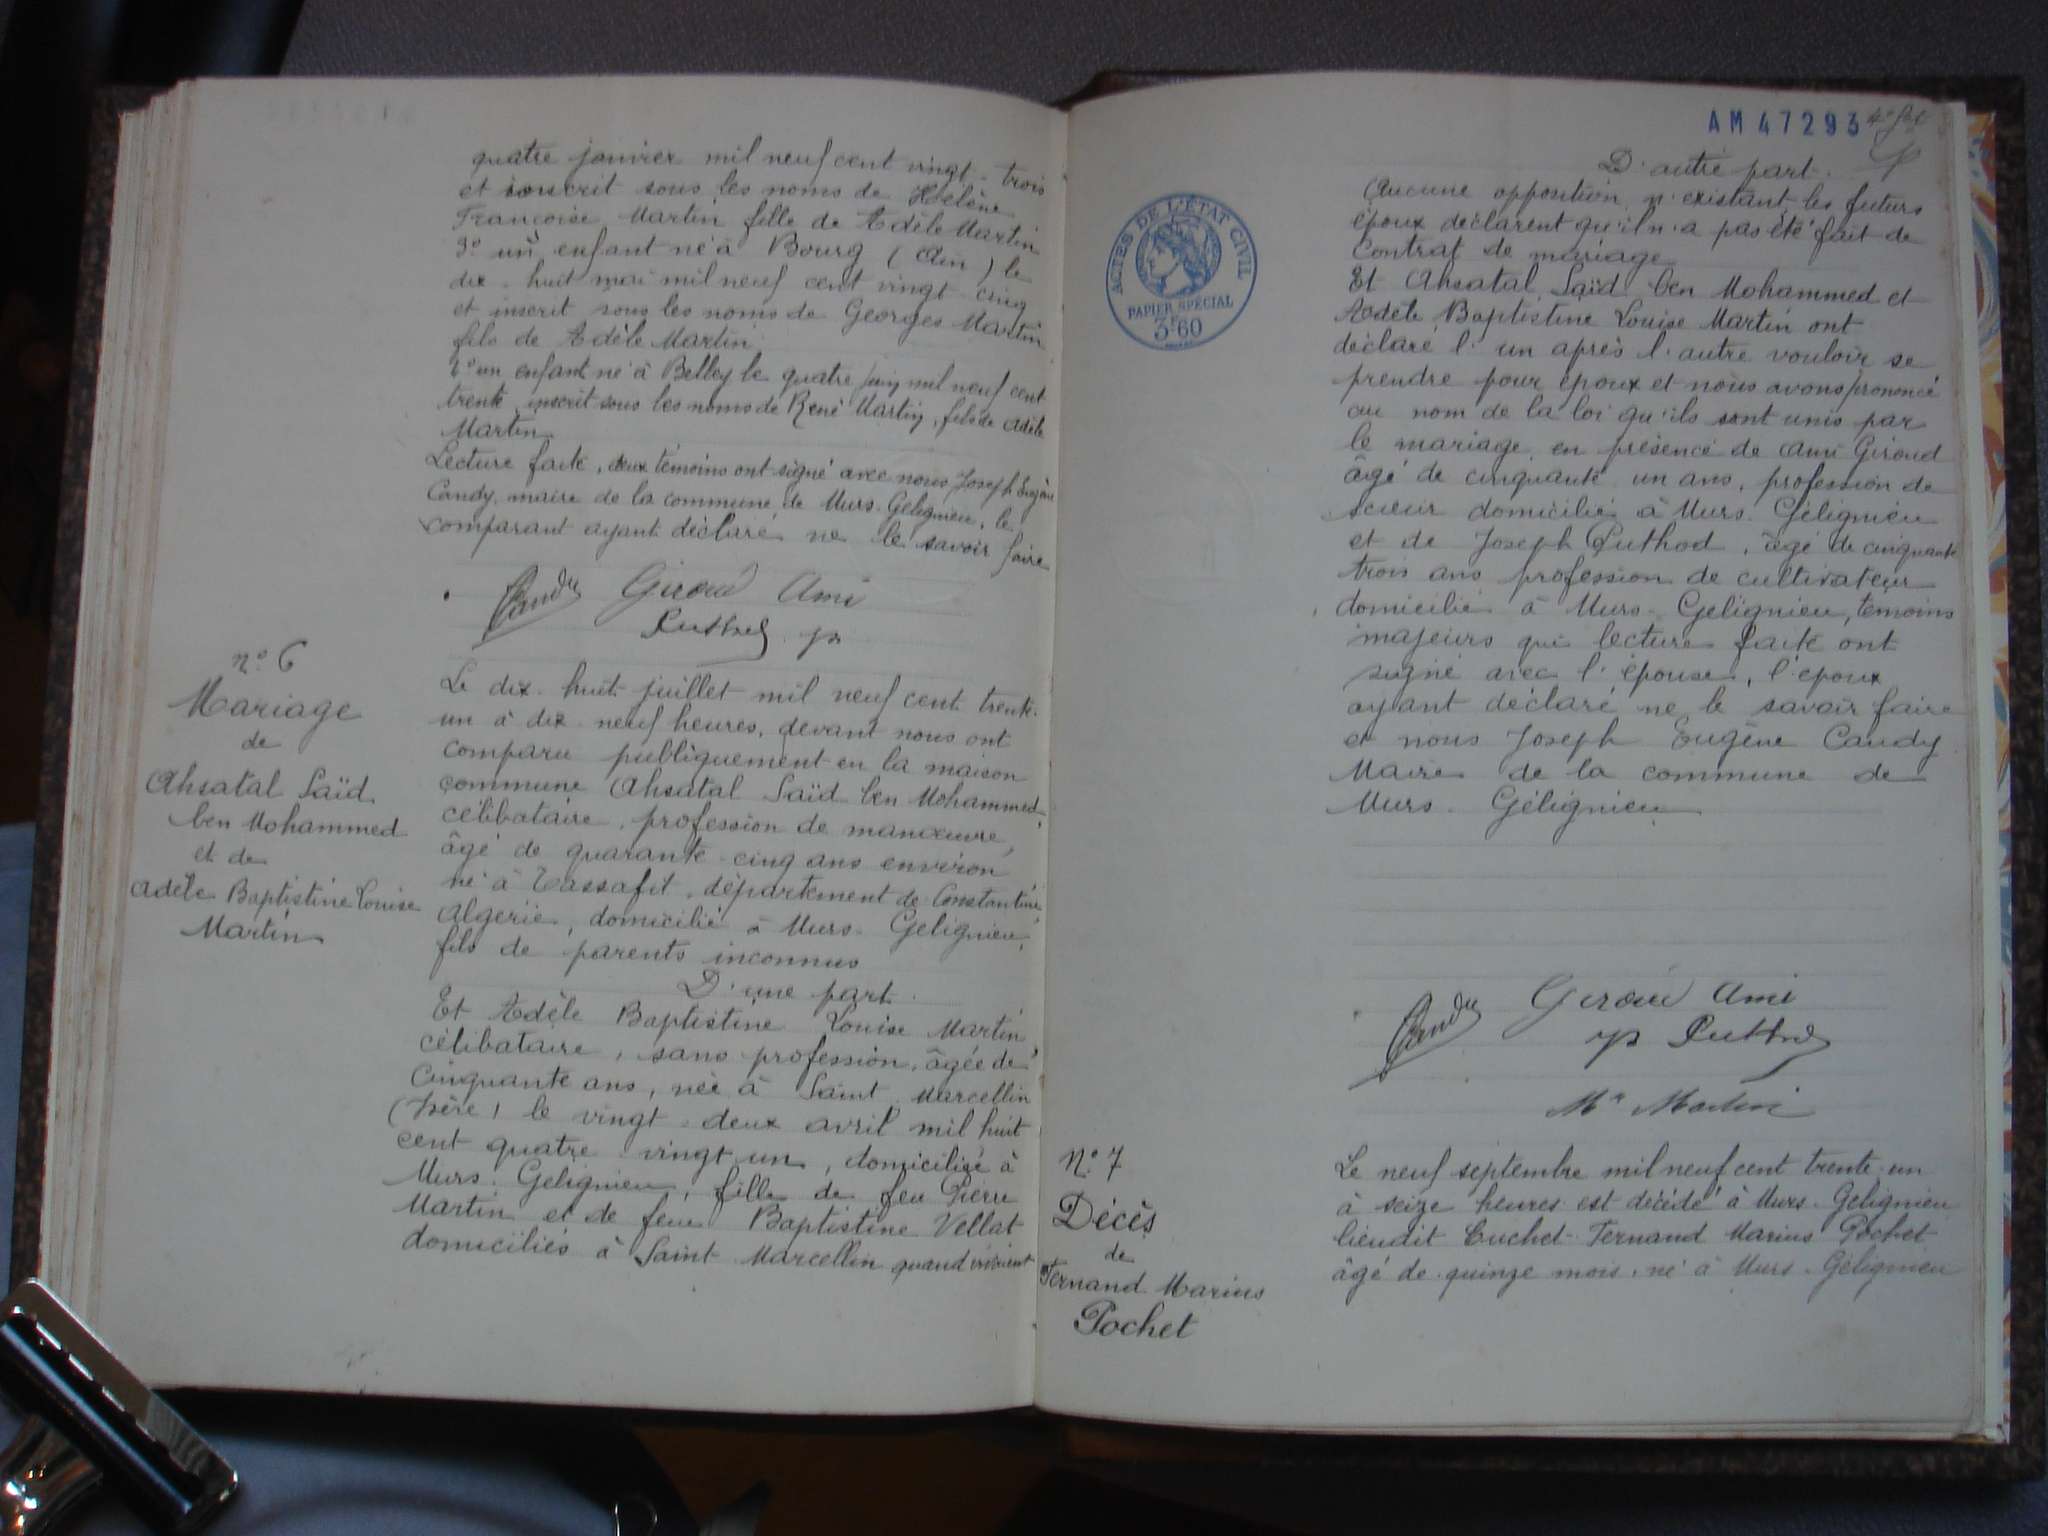 quatre janvier mil neuf cent vingt-trois
et inscrit sous les noms de Hélène
Françoise Martin fille de Adèle Martin
3° un enfant né à Bourg (Ain) le
dix-huit mai mil neuf cent vingt-cinq
et inscrit sous les noms de Georges Martin
fils de Adèle Martin
4° un enfant né à Belley le quatre juin mil neuf cent
trente inscrit sous les noms de René Martin, fils de Adèle
Martin
Lecture faite, deux témoins ont signé avec nous Joseph Eugène
Candy, maire de la commune de Murs-Gélignieu, le
comparant ayant déclaré ne le savoir faire
Candy Giroud Ami
Puthod
n° 6
Mariage
de
Ahsatal Saïd
ben Mohammed
et de
Adèle Baptistine Louise
Martin
Le dix-huit juillet mil neuf cent trente-
un à dix-neuf heures, devant nous ont
comparu publiquement en la maison
commune Ahsatal Saïd ben Mohammed,
célibataire, profession de manœuvre,
âgé de quarante-cinq ans environ
né à Tassafit, département de Constantine,
Algérie, domicilié à Murs-Gélignieu,
fils de parents inconnus
D'une part.
Et Adèle Baptistine Louise Martin
célibataire, sans profession, âgée de
cinquante ans, née à Saint Marcellin
(Isère) le vingt-deux avril mil huit
cent quatre-vingt un, domiciliée à
Murs-Gélignieu, fille de feu Pierre
Martin et de feue Baptistine Vellat
domiciliés à Saint Marcellin quand vivaient
AM 47293
D'autre part.
ACTES DE L'ÉTAT CIVIL
PAPIER SPÉCIAL
3F60
Aucune opposition n'existant, les futurs
époux déclarent qu'il n'a pas été fait de
Contrat de mariage
Et Ahsatal Saïd ben Mohammed et
Adèle Baptistine Louise Martin ont
déclaré l'un après l'autre vouloir se
prendre pour époux et nous avons prononcé
au nom de la loi qu'ils sont unis par
le mariage, en présence de Ami Giroud
âgé de cinquante un ans, profession de
scieur domicilié à Murs-Gélignieu
et de Joseph Puthod, âgé de cinquante
trois ans profession de cultivateur
domicilié à Murs-Gélignieu, témoins
majeurs qui lecture faite ont
signé avec l'épouse, l'époux
ayant déclaré ne le savoir faire
et nous Joseph Eugène Candy
Maire de la commune de
Murs-Gélignieu
Candy Giroud Ami
Puthod
Martin
N° 7
Décès
de
Fernand Marius
Pochet
Le neuf septembre mil neuf cent trente-un
à seize heures est décédé à Murs-Gélignieu
lieudit Cuchet Fernand Marius Pochet
âgé de quinze mois, né à Murs-Gélignieu